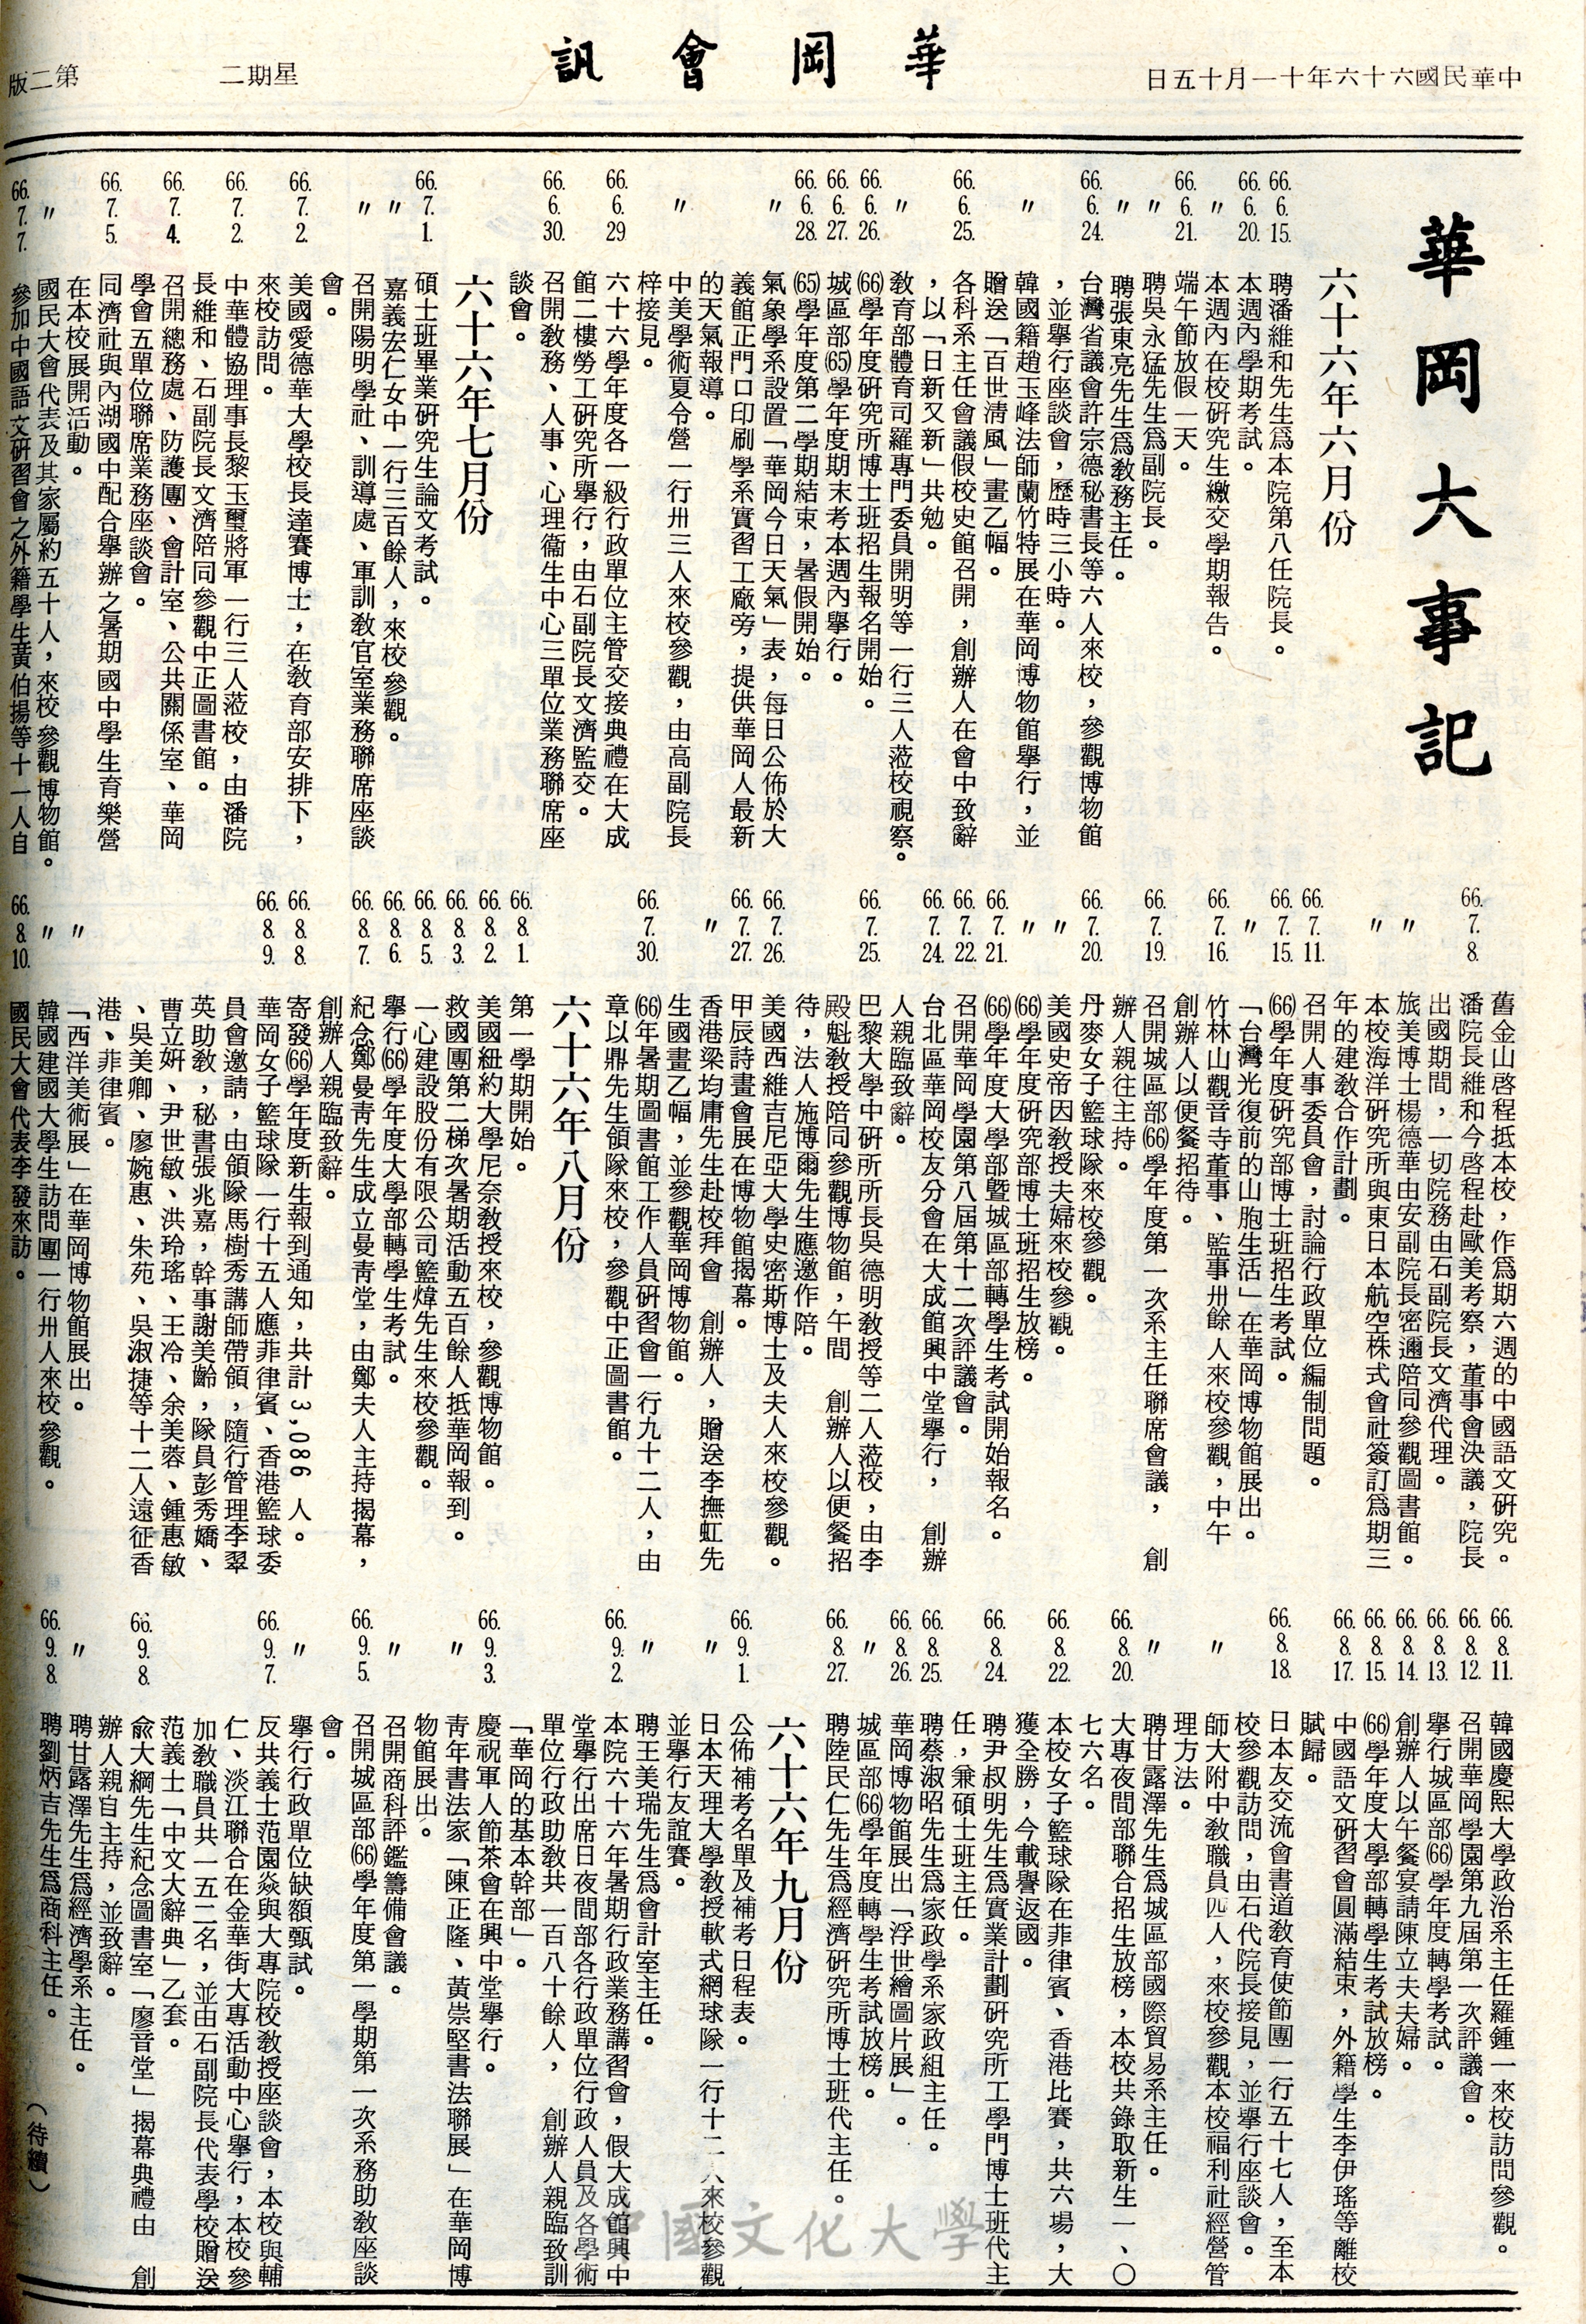 中華民國六十六年十一月十五日
華岡會訊
星期二
第二版
華岡大事記
六十六年六月份
66.6.15. 聘潘維和先生為本院第八任院長。
66.6.20. 本週內學期考試。
〃 本週內在校研究生繳交學期報告。
66.6.21. 端午節放假一天。
〃 聘吳永猛先生為副院長。
〃 聘張東亮先生為教務主任。
66.6.24. 台灣省議會許宗德秘書長等六人來校，參觀博物館
，並舉行座談會，歷時三小時。
〃 韓國籍趙玉峰法師蘭竹特展在華岡博物館舉行，並
贈送「百世清風」畫乙幅。
66.6.25. 各科系主任會議假校史館召開，創辦人在會中致辭
，以「日新又新」共勉。
〃 教育部體育司羅專門委員開明等一行三人蒞校視察。
66.6.26. (66)學年度研究所博士班招生報名開始。
66.6.27. 城區部(65)學年度期末考本週內舉行。
66.6.28. (65)學年度第二學期結束，暑假開始。
〃 氣象學系設置「華岡今日天氣」表，每日公佈於大
義館正門口印刷學系實習工廠旁，提供華岡人最新
的天氣報導。
〃 中美學術夏令營一行卅三人來校參觀，由高副院長
梓接見。
66.6.29 六十六學年度各一級行政單位主管交接典禮在大成
館二樓勞工研究所舉行，由石副院長文濟監交。
66.6.30. 召開教務、人事、心理衞生中心三單位業務聯席座
談會。
六十六年七月份
66.7.1. 碩士班畢業研究生論文考試。
〃 嘉義宏仁女中一行三百餘人，來校參觀。
〃 召開陽明學社、訓導處、軍訓教官室業務聯席座談
會。
66.7.2. 美國愛德華大學校長達賽博士，在教育部安排下，
來校訪問。
66.7.2. 中華體協理事長黎玉璽將軍一行三人蒞校，由潘院
長維和、石副院長文濟陪同參觀中正圖書館。
66.7.4. 召開總務處、防護團、會計室、公共關係室、華岡
學會五單位聯席業務座談會。
66.7.5. 同濟社與內湖國中配合舉辦之暑期國中學生育樂營
在本校展開活動。
〃 國民大會代表及其家屬約五十人，來校參觀博物館。
66.7.7. 參加中國語文研習會之外籍學生黃伯揚等十一人自
舊金山啓程抵本校，作為期六週的中國語文研究。
66.7.8. 潘院長維和今啓程赴歐美考察，董事會決議，院長
出國期間，一切院務由石副院長文濟代理。
〃 旅美博士楊德華由安副院長密邇陪同參觀圖書館。
〃 本校海洋研究所與東日本航空株式會社簽訂為期三
年的建教合作計劃。
66.7.11. 召開人事委員會，討論行政單位編制問題。
66.7.15. (66)學年度研究部博士班招生考試。
〃 「台灣光復前的山胞生活」在華岡博物館展出。
66.7.16. 竹林山觀音寺董事、監事卅餘人來校參觀，中午
創辦人以便餐招待。
66.7.19. 召開城區部(66)學年度第一次系主任聯席會議，　創
辦人親往主持。
66.7.20. 丹麥女子籃球隊來校參觀。
〃 美國史帝因教授夫婦來校參觀。
〃 (66)學年度研究部博士班招生放榜。
66.7.21. (66)學年度大學部暨城區部轉學生考試開始報名。
66.7.22. 召開華岡學園第八屆第十二次評議會。
66.7.24. 台北區華岡校友分會在大成館興中堂舉行，　創辦
人親臨致辭。
66.7.25. 巴黎大學中研所所長吳德明教授等二人蒞校，由李
殿魁教授陪同參觀博物館，午間　創辦人以便餐招
待，法人施博爾先生應邀作陪。
66.7.26. 美國西維吉尼亞大學史密斯博士及夫人來校參觀。
66.7.27. 甲辰詩畫會展在博物館揭幕。
〃 香港梁均庸先生赴校拜會　創辦人，贈送李撫虹先
生國畫乙幅，並參觀華岡博物館。
66.7.30. (66)年暑期圖書館工作人員研習會一行九十二人，由
章以鼎先生領隊來校，參觀中正圖書館。
六十六年八月份
66.8.1. 第一學期開始。
66.8.2. 美國紐約大學尼奈教授來校，參觀博物館。
66.8.3. 救國團第二梯次暑期活動五百餘人抵華岡報到。
66.8.5. 一心建設股份有限公司籃煒先生來校參觀。
66.8.6. 舉行(66)學年度大學部轉學生考試。
66.8.7. 紀念鄭曼青先生成立曼青堂，由鄭夫人主持揭幕，
創辦人親臨致辭。
66.8.8. 寄發(66)學年度新生報到通知，共計3,086人。
66.8.9. 華岡女子籃球隊一行十五人應菲律賓、香港籃球委
員會邀請，由領隊馬樹秀講師帶領，隨行管理李翠
英助教，秘書張兆嘉，幹事謝美齡，隊員彭秀嬌、
曹立妍、尹世敏、洪玲瑤、王冷、余美蓉、鍾惠敏
、吳美卿、廖婉惠、朱苑、吳淑捷等十二人遠征香
港、菲律賓。
〃 「西洋美術展」在華岡博物館展出。
〃 韓國建國大學生訪問團一行卅人來校參觀。
66.8.10. 國民大會代表李發來訪。
66.8.11. 韓國慶熙大學政治系主任羅鍾一來校訪問參觀。
66.8.12. 召開華岡學園第九屆第一次評議會。
66.8.13. 舉行城區部(66)學年度轉學考試。
66.8.14. 創辦人以午餐宴請陳立夫夫婦。
66.8.15. (66)學年度大學部轉學生考試放榜。
66.8.17. 中國語文研習會圓滿結束，外籍學生李伊瑤等離校
賦歸。
66.8.18. 日本友交流會書道教育使節團一行五十七人，至本
校參觀訪問，由石代院長接見，並舉行座談會。
〃 師大附中教職員四人，來校參觀本校福利社經營管
理方法。
〃 聘甘露澤先生為城區部國際貿易系主任。
66.8.20. 大專夜間部聯合招生放榜，本校共錄取新生一、〇
七六名。
66.8.22. 本校女子籃球隊在菲律賓、香港比賽，共六場，大
獲全勝，今載譽返國。
66.8.24. 聘尹叔明先生為實業計劃研究所工學門博士班代主
任，兼碩士班主任。
66.8.25. 聘蔡淑昭先生為家政學系家政組主任。
66.8.26. 華岡博物館展出「浮世繪圖片展」。
〃 城區部(66)學年度轉學生考試放榜。
66.8.27. 聘陸民仁先生為經濟研究所博士班代主任。
六十六年九月份
66.9.1. 公佈補考名單及補考日程表。
〃 日本天理大學教授軟式網球隊一行十二人來校參觀
並舉行友誼賽。
〃 聘王美瑞先生為會計室主任。
66.9.2. 本院六十六年暑期行政業務講習會，假大成館興中
堂舉行出席日夜間部各行政單位行政人員及各學術
單位行政助教共一百八十餘人，　創辦人親臨致訓
「華岡的基本幹部」。
66.9.3. 慶祝軍人節茶會在興中堂舉行。
〃 青年書法家「陳正隆、黃崇堅書法聯展」在華岡博
物館展出。
〃 召開商科評鑑籌備會議。
66.9.5. 召開城區部(66)學年度第一學期第一次系務助教座談
會。
〃 舉行行政單位缺額甄試。
66.9.7. 反共義士范園焱與大專院校教授座談會，本校與輔
仁、淡江聯合在金華街大專活動中心舉行，本校參
加教職員共一五二名，並由石副院長代表學校贈送
范義士「中文大辭典」乙套。
66.9.8. 俞大綱先生紀念圖書室「廖音堂」揭幕典禮由　創
辦人親自主持，並致辭。
〃 聘甘露澤先生為經濟學系主任。
66.9.8. 聘劉炳吉先生為商科主任。
（待續）
中國文化大學